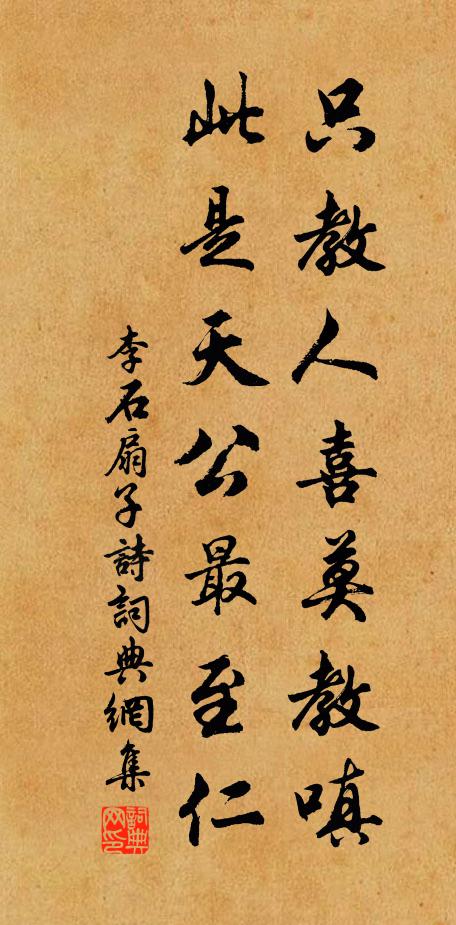 只教人喜莫教嗔
此是天公最至仁
李石扇子詩詞典網集
詞典网印